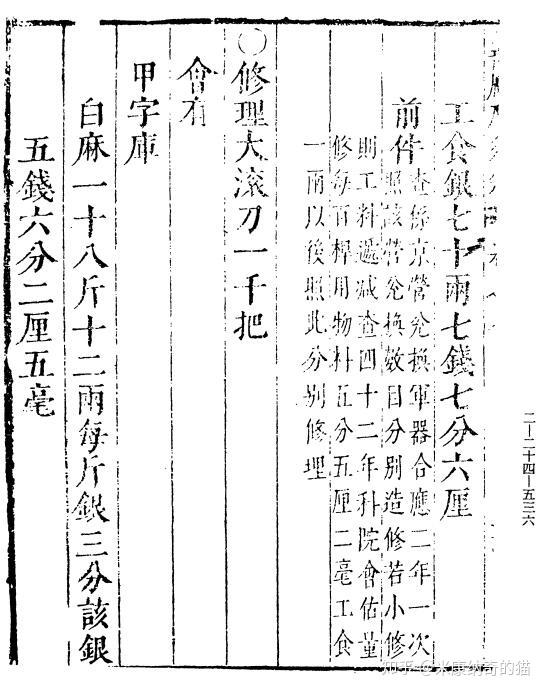 工食銀七十兩七錢七分六厘
前件查係京營兌換軍器合應二年一次
照該營兌換數目分別造修若小修
則工料遞減查四十二年科院會估量
修每百桿用物料五分五厘二毫工食
一兩以後照此分別修理
〇修理大滾刀一千把
會有
甲字庫
白麻一十八斤十二兩每斤銀三分該銀
五錢六分二厘五毫
二—二十四—五三六
知乎 @米康纳奇的猫